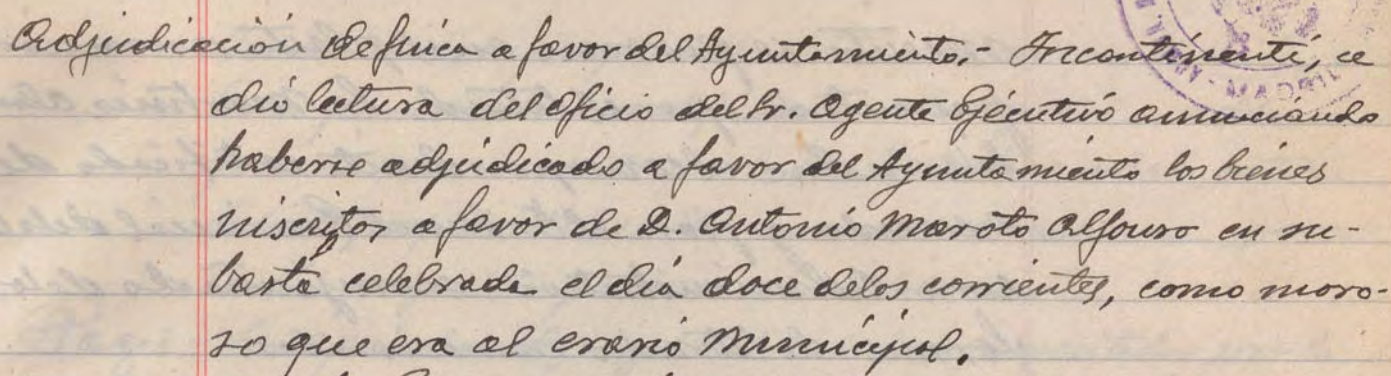 Adjudicación de finca a favor del Ayuntamiento.- Incontinenti, se
dió lectura del oficio del Sr. Agente Ejecutivo anunciando
haberse adjudicado a favor del Ayuntamiento los bienes
inscritos a favor de D. Antonio Maroto Alfonso en su-
basta celebrada el día doce de los corrientes, como moro-
so que era al erario Municipal.